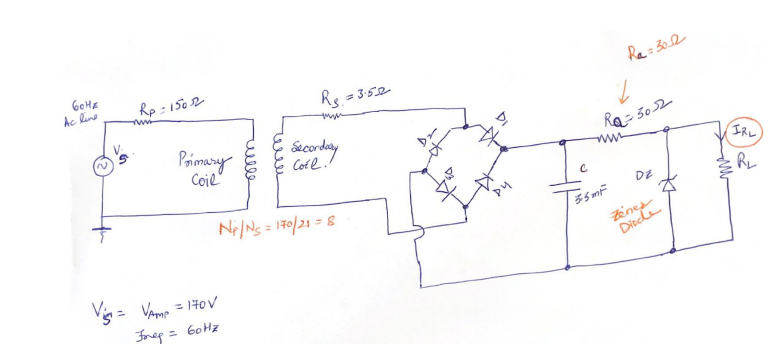 Ra = 30Ω
60Hz
Ac line
Rp = 150Ω
Rs = 3.5Ω
Vs
Primary
Coil
Secondary
Coil.
D2
D1
D3
D4
Np/Ns = 170/21 = 8
C
3.5mF
Ra = 30Ω
Dz
Zener
Diode
IRL
RL
Vs = VAmp = 170V
Freq = 60Hz